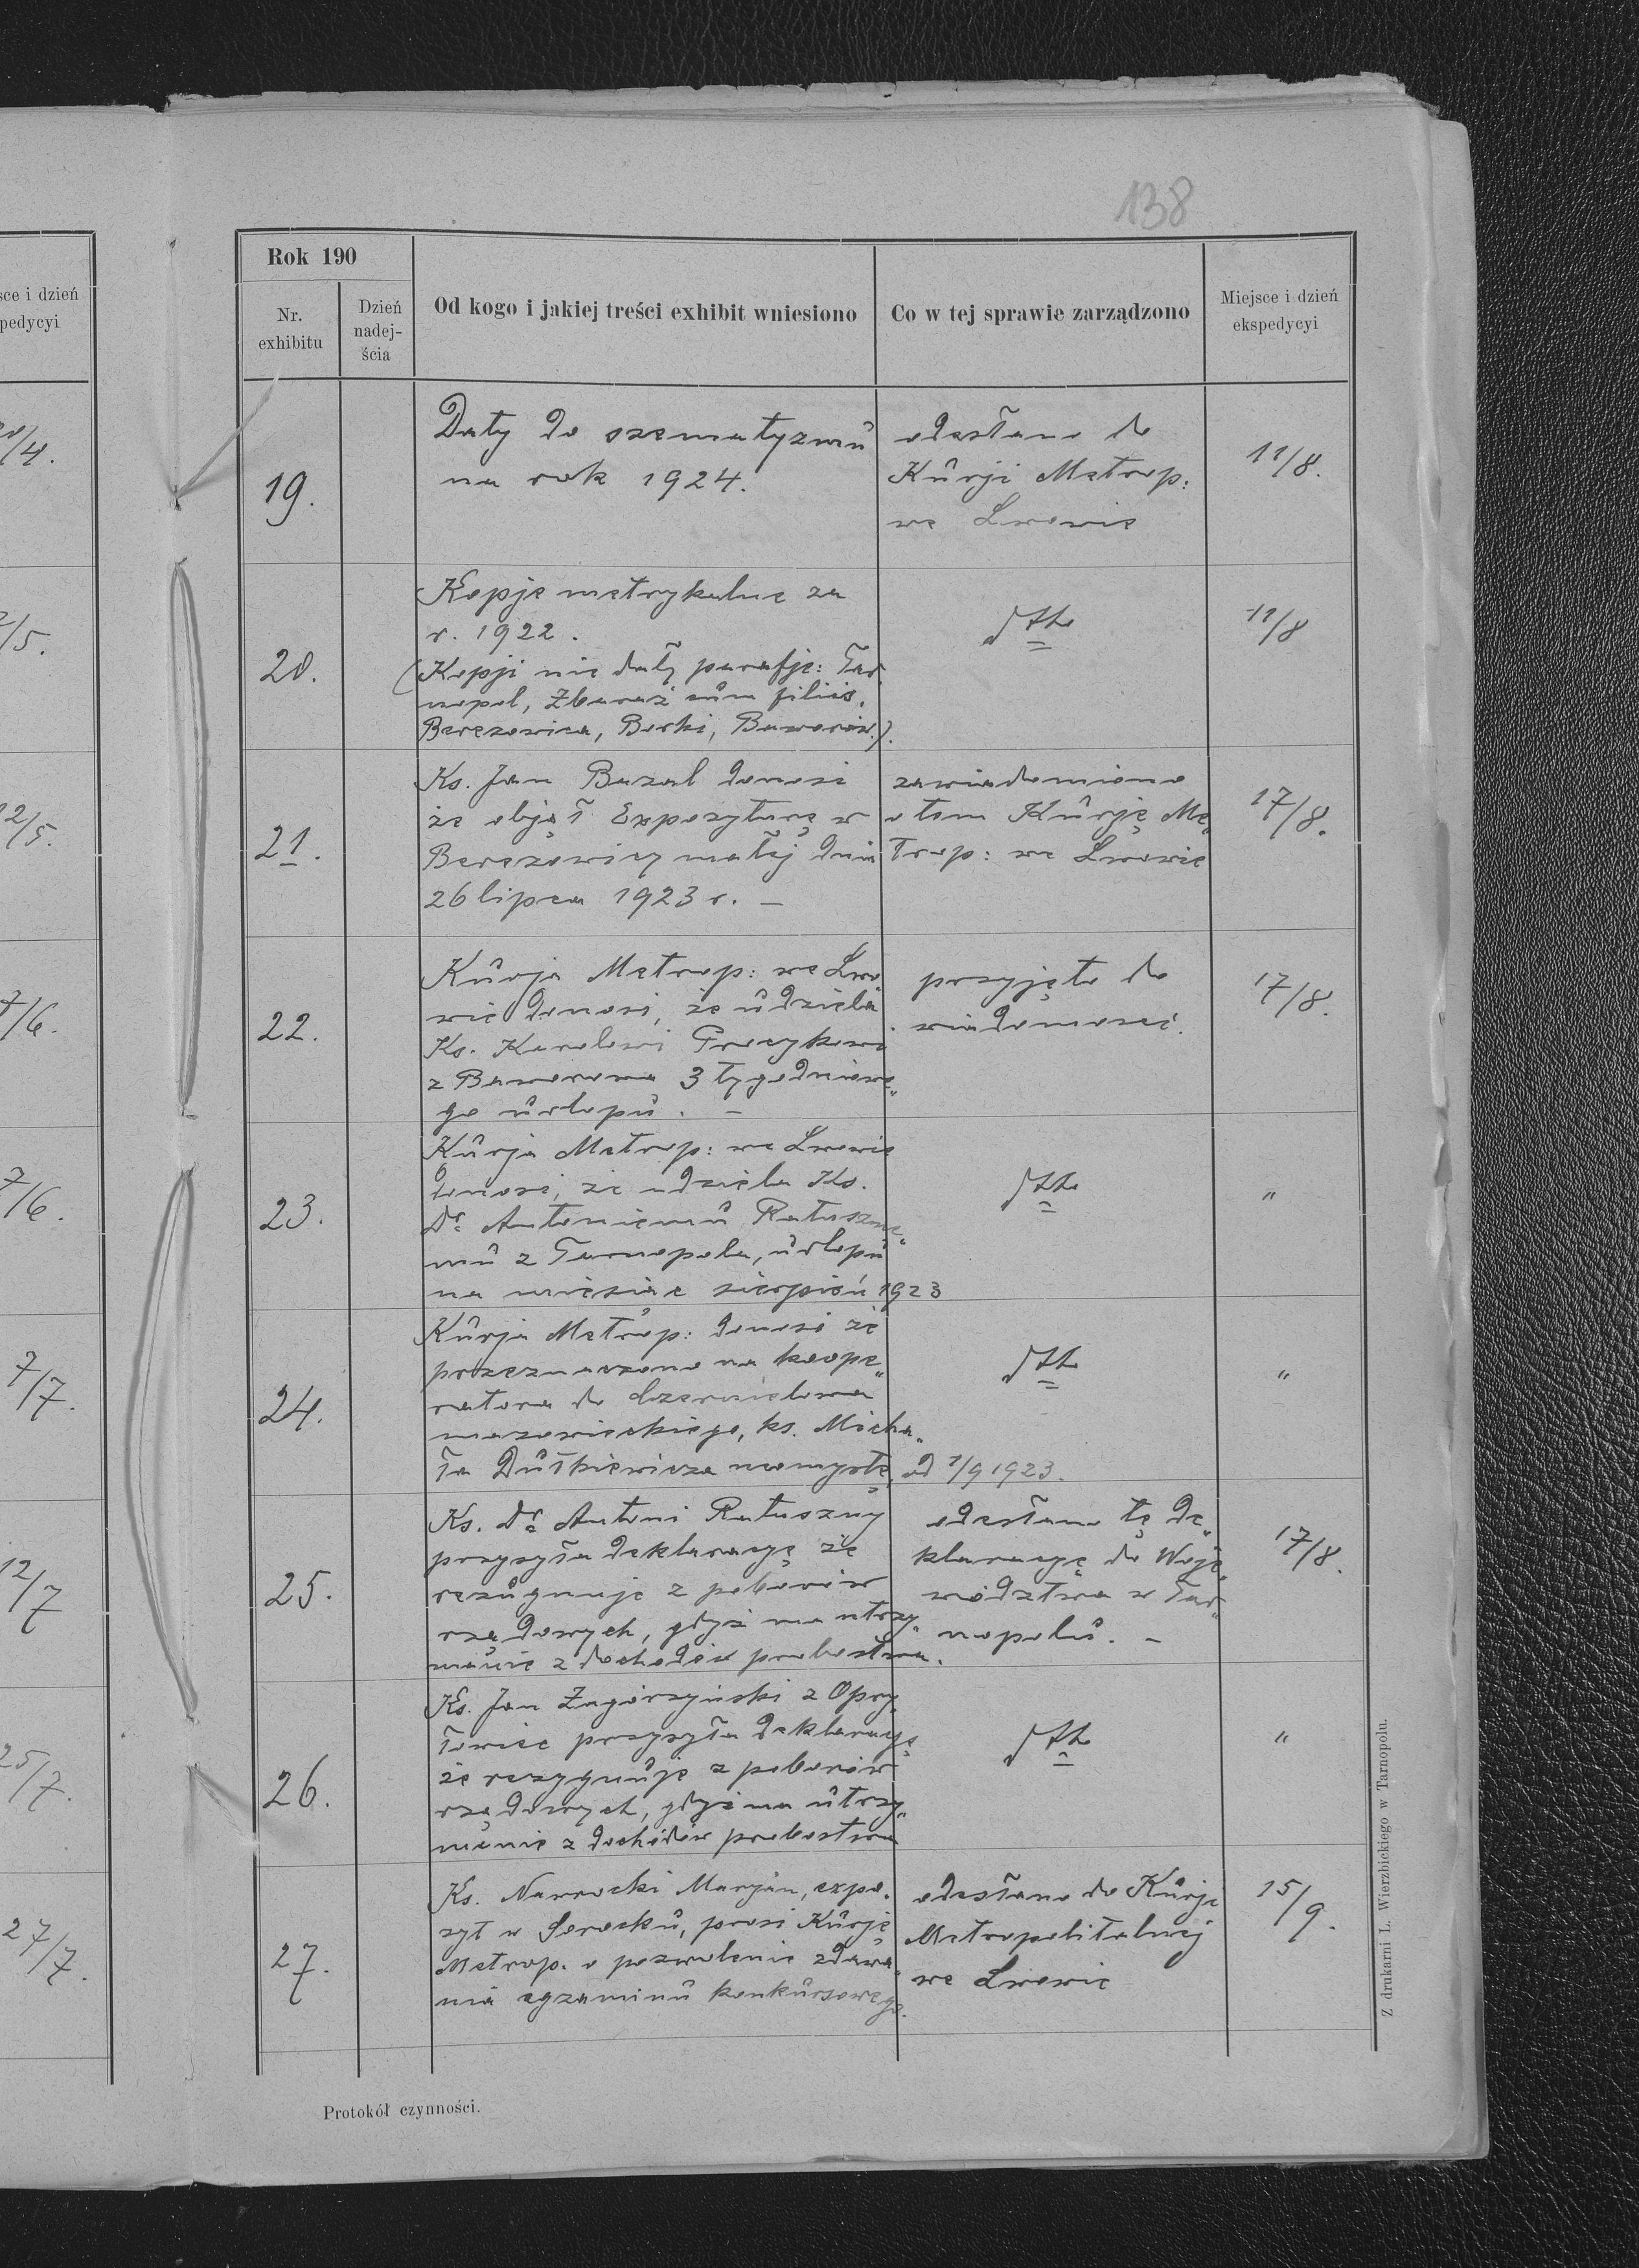 138
Rok 190
Nr. exhibitu
Dzień nadejścia
Od kogo i jakiej treści exhibit wniesiono
Co w tej sprawie zarządzono
Miejsce i dzień ekspedycyi
sce i dzień
pedycyi
/4.
/5.
12/5.
7/6.
7/6.
7/7.
12/7
25/7.
27/7.
19.
Daty do szematyzmu
na rok 1924.
odesłano do
Kurji Metrop:
we Lwowie
11/8.
20.
Kopje metrykalne za
r. 1922.
(Kopji nie dały parafje: Tar
nopol, Zbaraż cum filiis,
Berezowica, Borki, Baworów.).
dtto
11/8
21.
Ks. Jan Bazal donosi
że objął Expozyturę w
Berezowicy małej dnia
26 lipca 1923 r. –
zawiadomiono
o tem Kurję Me„
trop: we Lwowie
17/8.
22.
Kurja Metrop: we Lwo
wie donosi, że udziela
Ks. Karolowi Procykowi
z Baworowa 3 tygodniowe„
go urlopu. –
przyjęto do
wiadomości.
17/8.
23.
Kurja Metrop: we Lwowie
donosi, że udziela Ks.
Dr. Antoniemu Ratuszne„
mu z Tarnopola, urlopu
na miesiąc sierpień 1923
dtto
"
24.
Kurja Metrop: donosi że
przeznaczono na koope„
ratora do Czernielowa
mazowieckiego, ks. Micha„
ła Dutkiewicza neomystę, od 1/9 1923.
dtto
"
25.
Ks. Dr. Antoni Ratuszny
przysyła deklarację że
rezugnuje z poborów
rządowych, gdyż ma utrzy„
manie z dochodów probostwa.
odesłano tę de„
klarację do Woje„
wództwa w Tar„
nopolu. –
17/8.
26.
Ks. Jan Zagórzyński z Opry„
łowiec przysyła deklarację
że rezygnuje z poborów
rządowych, gdyż ma utrzy„
manie z dochodów probostwa
dtto
"
27.
Ks. Nawrocki Maryan, expo„
zyt w Sorocku, prosi Kurję
Metrop. o pozwolenie zdawa„
nia egzaminu konkursowego.
odesłano do Kurji
Metropolitalnej
we Lwowie
15/9.
Protokół czynności.
Z drukarni L. Wierzbickiego w Tarnopolu.